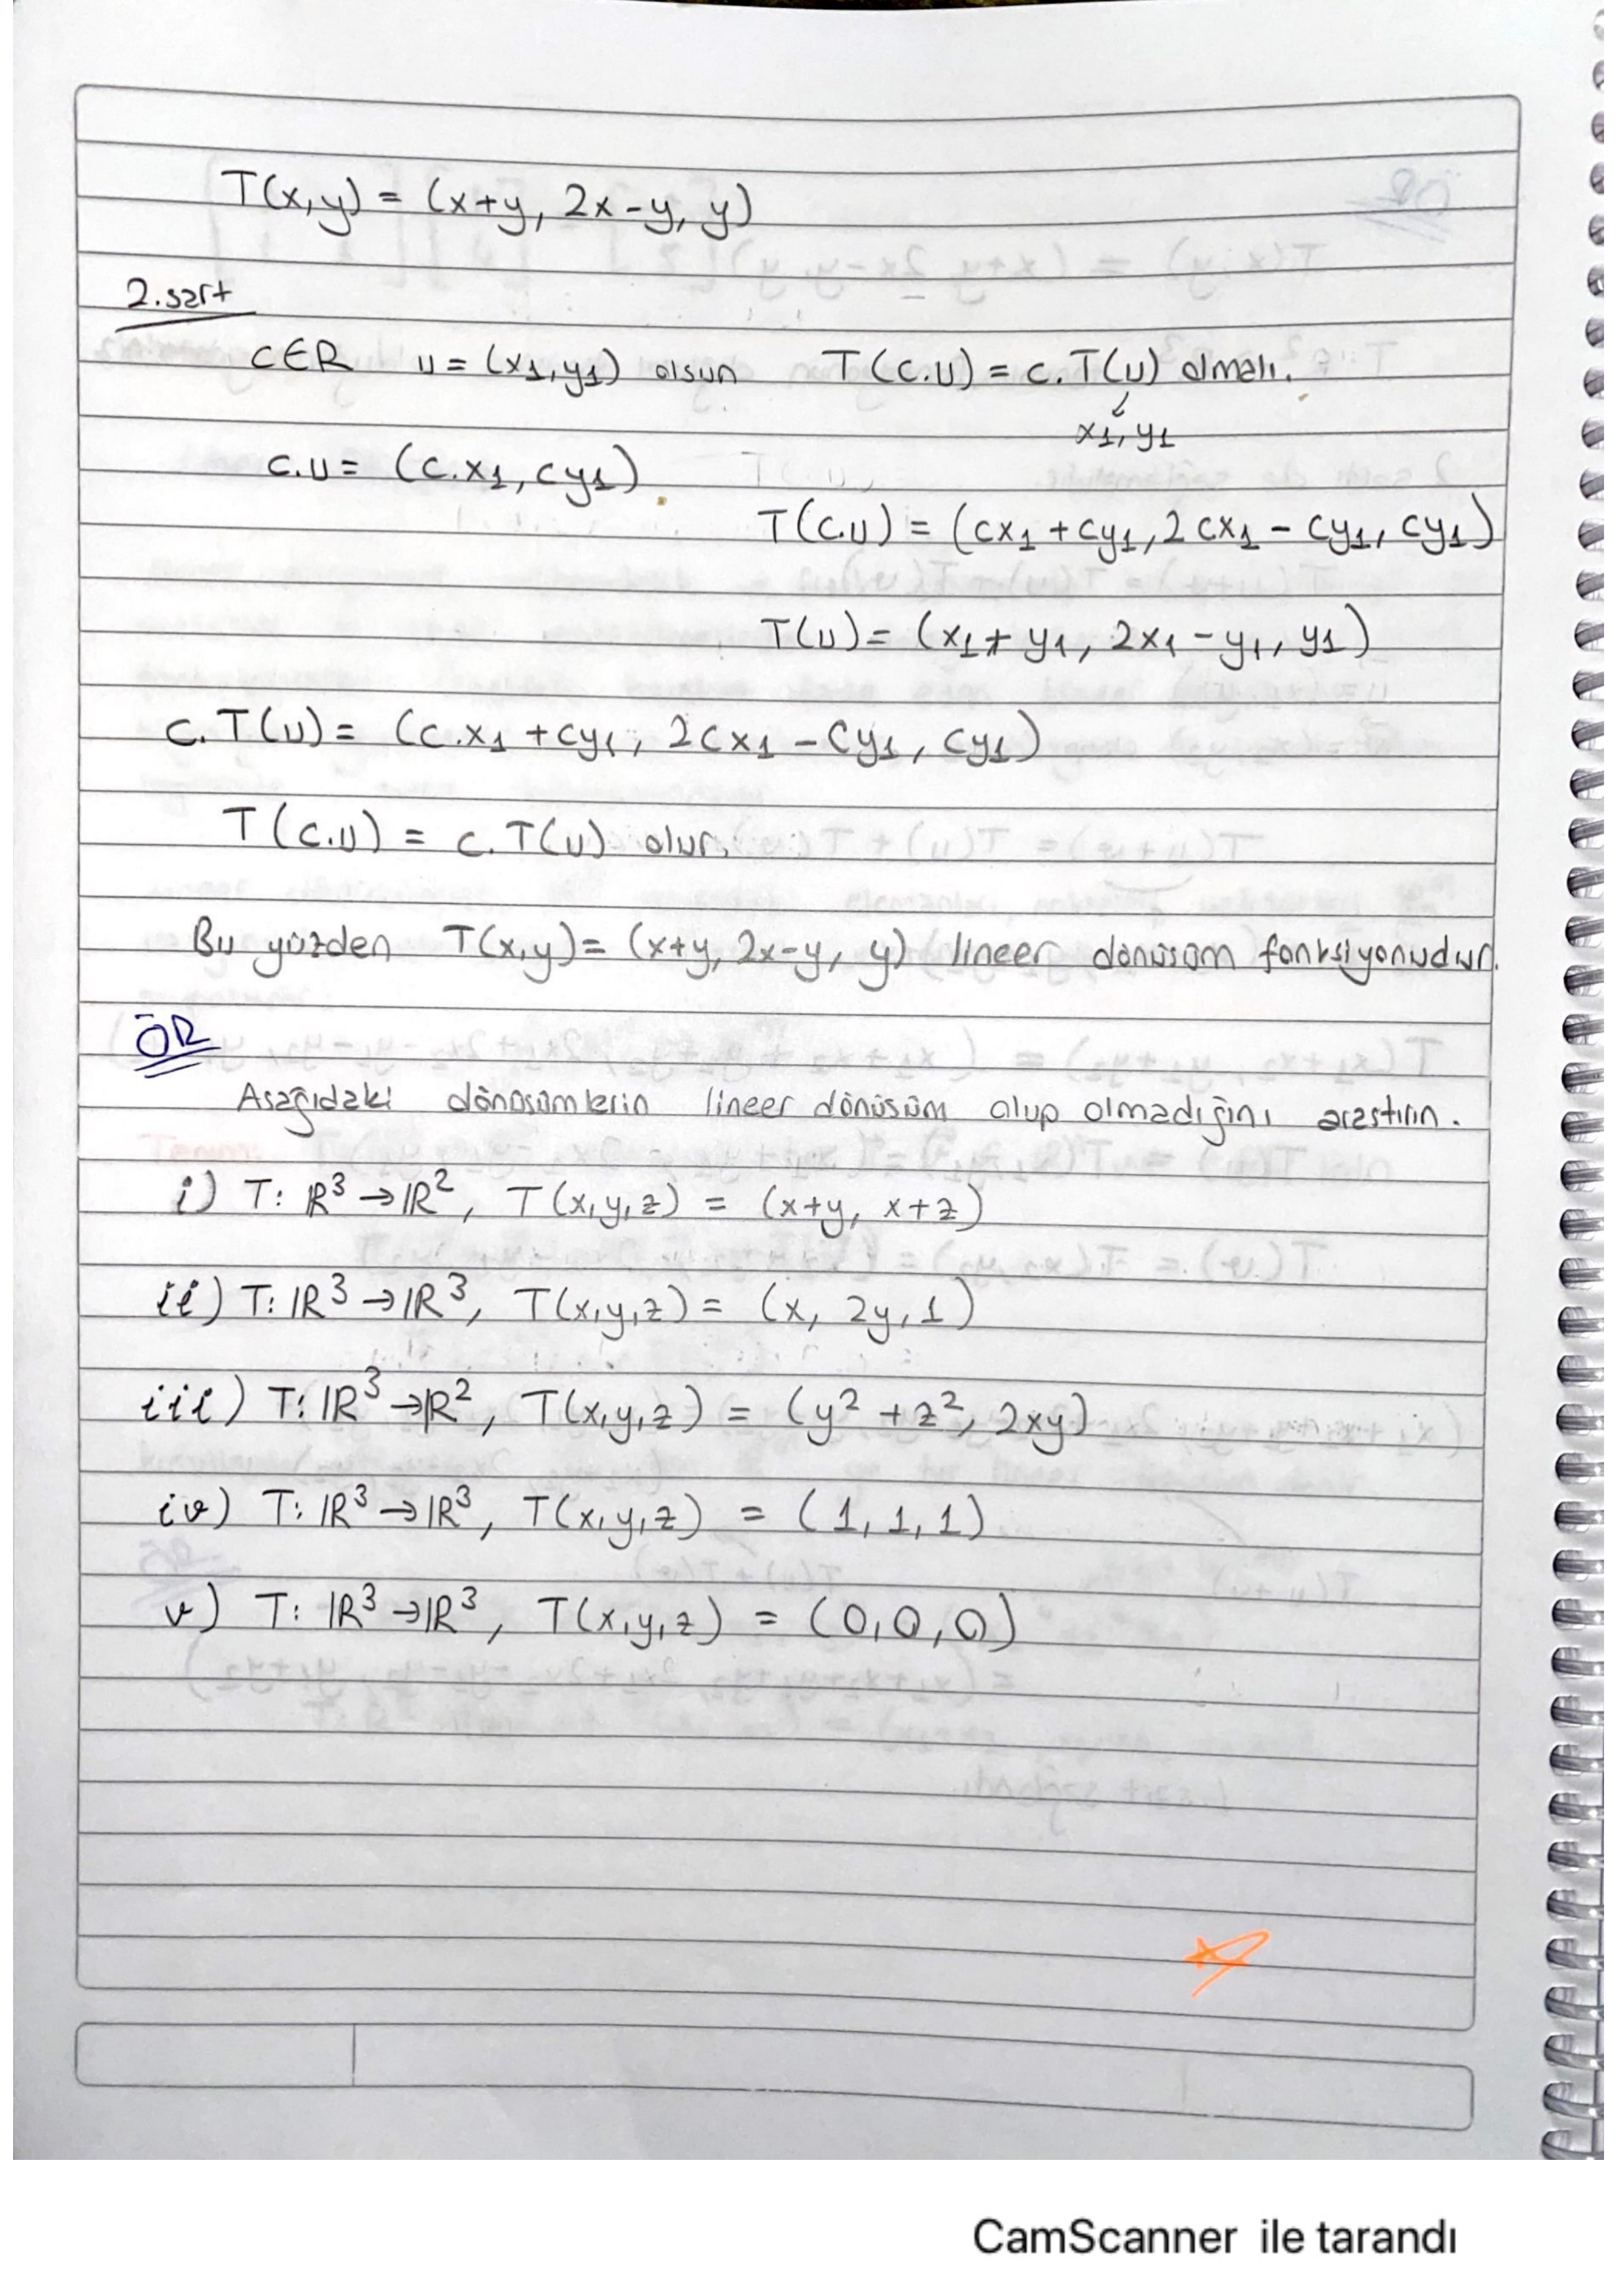 T(x,y) = (x+y, 2x-y, y)
2.şart
CER u = (x1,y1) olsun T(c.u) = c.T(u) olmalı.
x1,y1
c.u = (c.x1, cy1)
T(c.u) = (cx1 + cy1, 2cx1 - cy1, cy1)
T(u) = (x1 + y1, 2x1 - y1, y1)
c.T(u) = (c.x1 + cy1, 2cx1 - cy1, cy1)
T(c.u) = c.T(u) olur.
Bu yüzden T(x,y) = (x+y, 2x-y, y) lineer dönüşüm fonksiyonudur.
ÖR
Aşağıdaki dönüşümlerin lineer dönüşüm olup olmadığını araştırın.
i) T: ℝ³ → ℝ², T(x,y,z) = (x+y, x+z)
ii) T: ℝ³ → ℝ³, T(x,y,z) = (x, 2y, 1)
iii) T: ℝ³ → ℝ², T(x,y,z) = (y² + z², 2xy)
iv) T: ℝ³ → ℝ³, T(x,y,z) = (1, 1, 1)
v) T: ℝ³ → ℝ³, T(x,y,z) = (0,0,0)
CamScanner ile tarandı